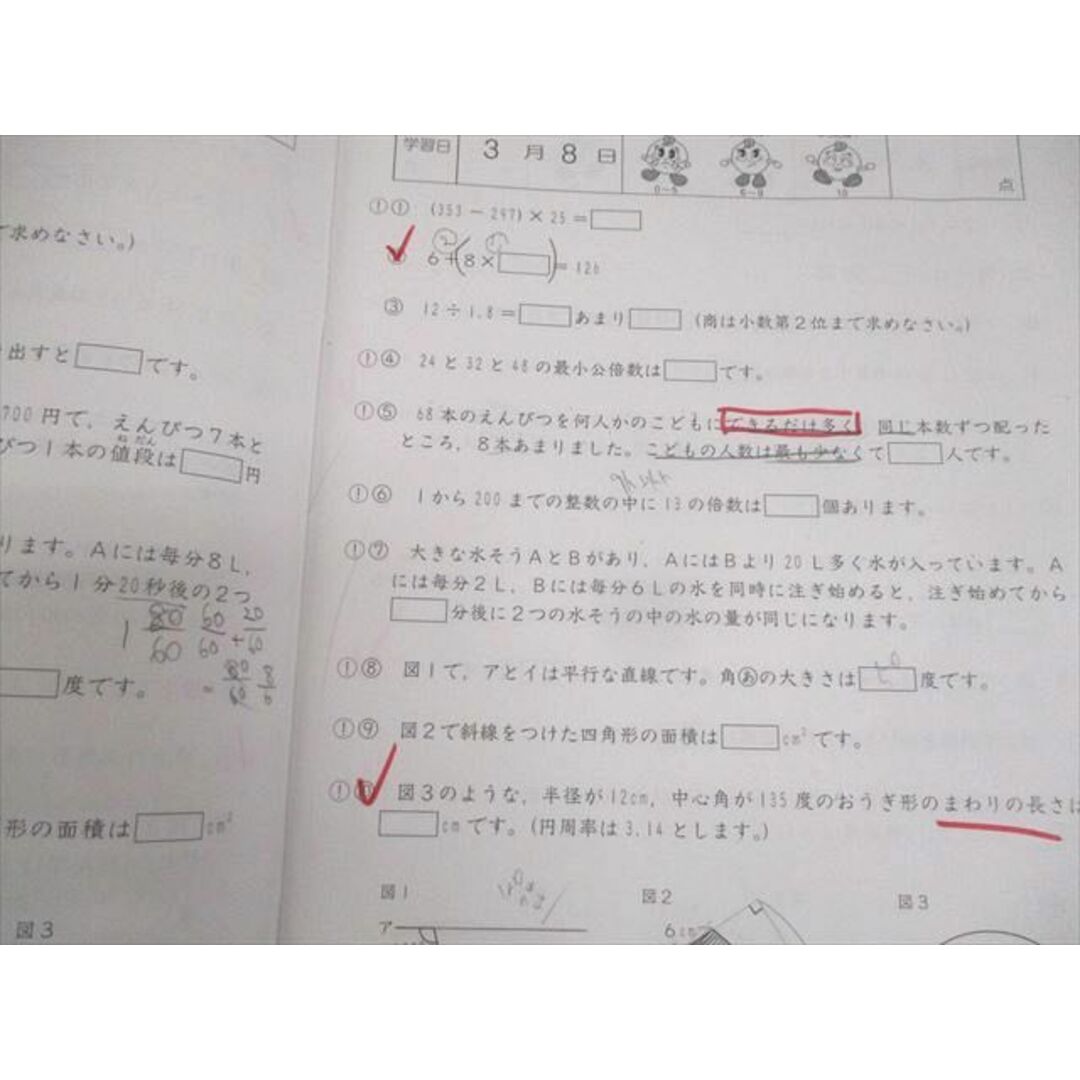 て求めなさい。)
出すと□です。
700円で,えんぴつ7本と
ねだん
ぴつ1本の値段は□円
ります。Aには毎分8L,
てから1分20秒後の2つ
1 80/60 60/60 + 20/60
= 80/60 8/6
□度です。
形の面積は□cm²
図3
学習日 3月8日
0~5 6~9 10 点
①① (353-297)×25=□
② ①
6+(8×□)=126
③ 12÷1.8=□あまり□ (商は小数第2位まで求めなさい。)
①④ 24と32と48の最小公倍数は□です。
①⑤ 68本のえんぴつを何人かのこどもにできるだけ多く 同じ本数ずつ配った
ところ,8本あまりました。こどもの人数は最も少なくて□人です。
①⑥ 1から200までの整数の中に13の倍数は□個あります。
①⑦ 大きな水そうAとBがあり,AにはBより20L多く水が入っています。A
には毎分2L,Bには毎分6Lの水を同時に注ぎ始めると,注ぎ始めてから
□分後に2つの水そうの中の水の量が同じになります。
①⑧ 図1で,アとイは平行な直線です。角あの大きさは□度です。
①⑨ 図2で斜線をつけた四角形の面積は□cm²です。
① 図3のような,半径が12cm,中心角が135度のおうぎ形のまわりの長さは
□cmです。(円周率は3.14とします。)
図1
図2
図3
ア
6cm